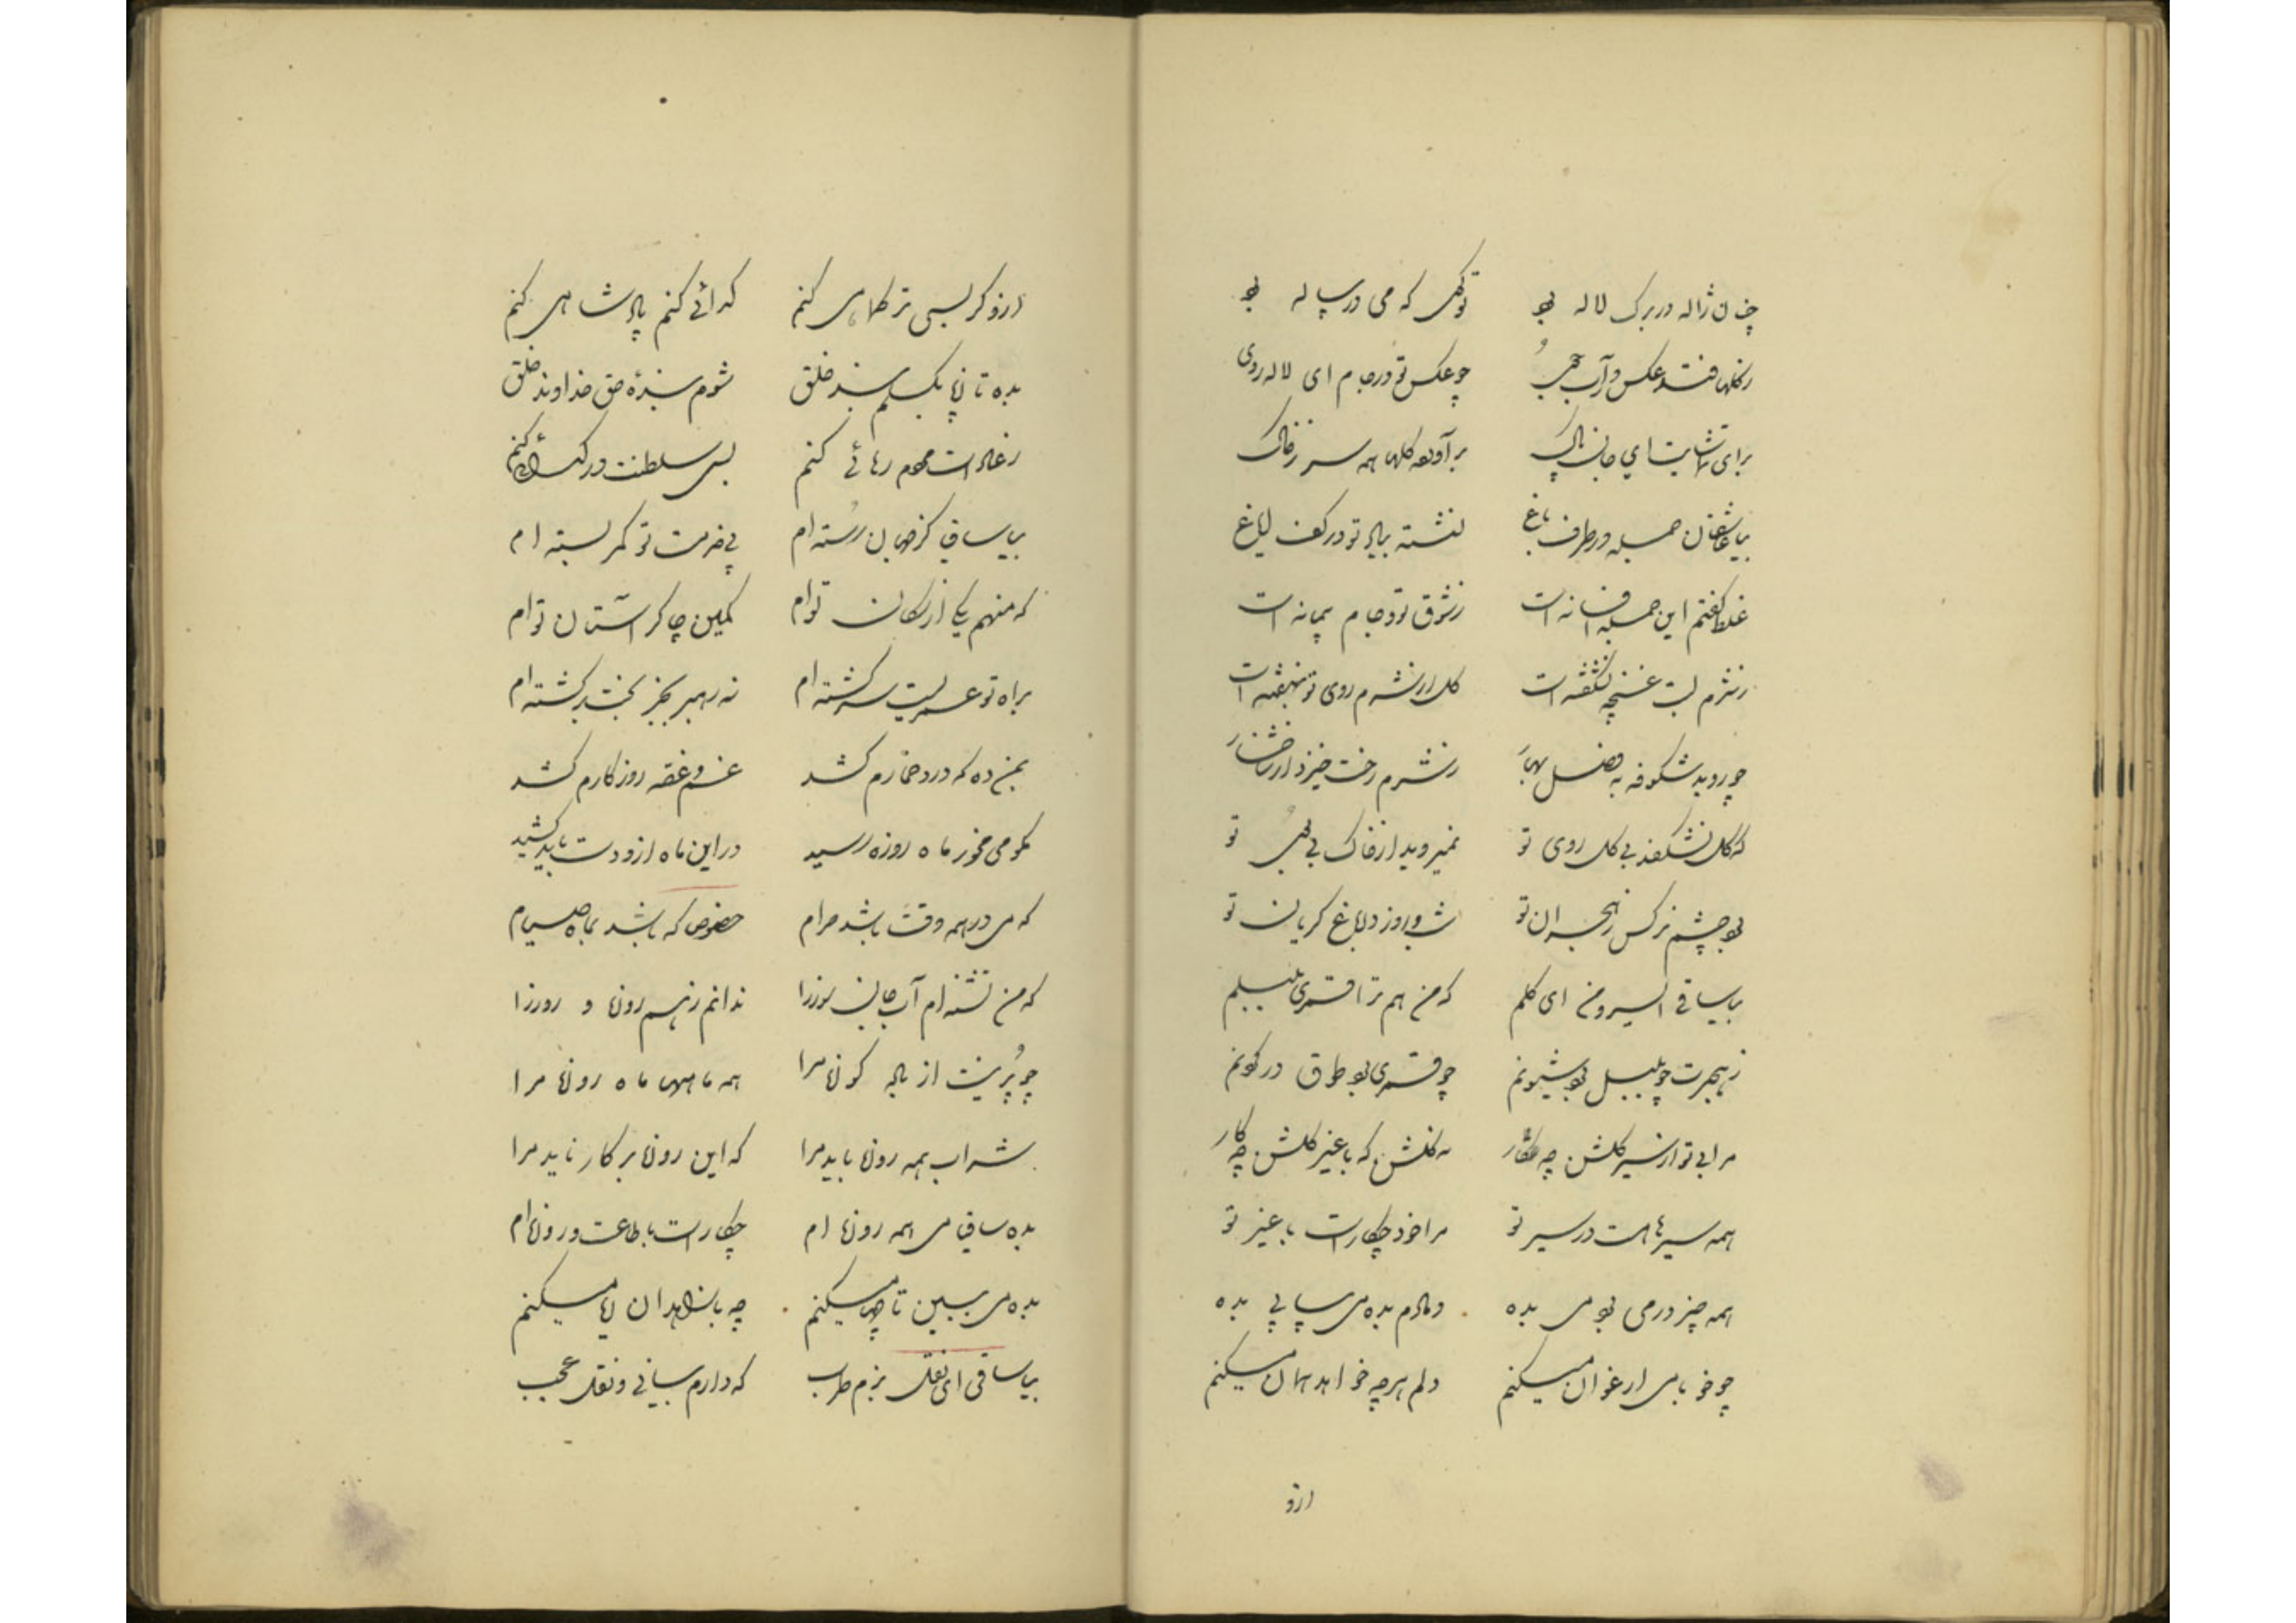 چنان ژاله در برک لاله بود توکلی که می در پیاله بود
ز کلها فتد عکس در آب جوی چو عکس تو در جام ای لاله روی
برای تماشایت ای جان پاک برآورده کلها همه سر ز خاک
بیا عاشقان جمله در طرف باغ نشسته بیاد تو در کف ایاغ
غلط کفتم این جمله افسانه است ز شوق تو در جام پیمانه است
ز شرم لبت غنچه نشکفته است کل از شرم روی تو بنهفته است
چو روید شکوفه به فصل بهار ز شرم رخت خیزد از شاخسار
که کل نشکفد بی کل روی تو نمیروید از خاک بی بوی تو
بود چشم نرکس ز هجران تو شب و روز در باغ کریان تو
بیا ساقی ای سرو من ای کلم که من هم ترا قمری و بلبلم
ز هجرت چو بلبل بود شیونم چو قمری بود طوق در کردنم
مرا بی تو از سیر کلشن چه کار نه کلشن که با غیر کلشن چه کار
همه سیرها هست در سیر تو مرا خود چکار است با غیر تو
همه چیز در می بود می بده دمادم بده می پیاپی بده
چو خو با می ارغوان میکنم دلم هر چه خواهد همان میکنم
ازو
ازو کر بسی ترکتاهی کنم کدائی کنم پادشاهی کنم
بده تا ز پا بکسلم بند خلق شوم بندهٔ حق خداوند خلق
ز عادات مردم رهائی کنم بسی سلطنت در کدائی کنم
بیا ساقی کز جهان رسته ام پی خدمت تو کمر بسته ام
که منهم یکی از سکان توام کمین چاکر آستان توام
براه تو عمریست سرکشته ام نه رهبر بجز بخت برکشته ام
بمن ده که درد خمارم کشد غم و غصه روزکارم کشد
مکو می مخور ماه روزه رسید در این ماه ازو دست باید کشید
که می در همه وقت باشد حرام خصوص که باشد بماه صیام
که من تشنه ام آب جان روزرا ندانم ز هم روزه و روزرا
چو پر نیست از باده کوزه مرا همه ماهها ماه روزه مرا
شراب همه روزه باید مرا که این روزه بر کار ناید مرا
بده ساقی می همه روزه ام چکار است با طاعت و روزه ام
بده می ببین تا چها میکنم چه با زاهدان ریا میکنم
بیا ساقی ای نقل بزم طرب که دارم بیانی و نقل عجب